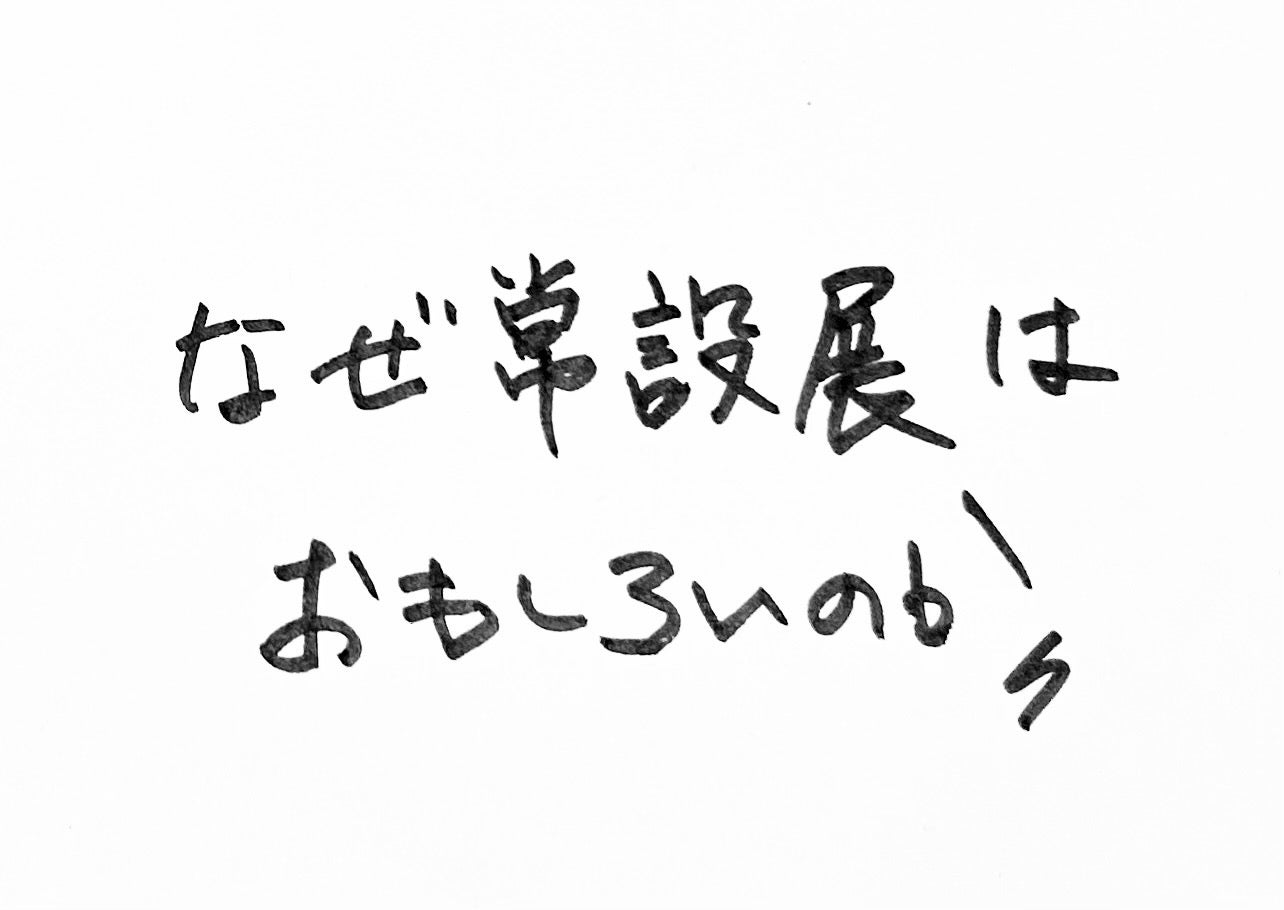 なぜ常設展は
おもしろいのか